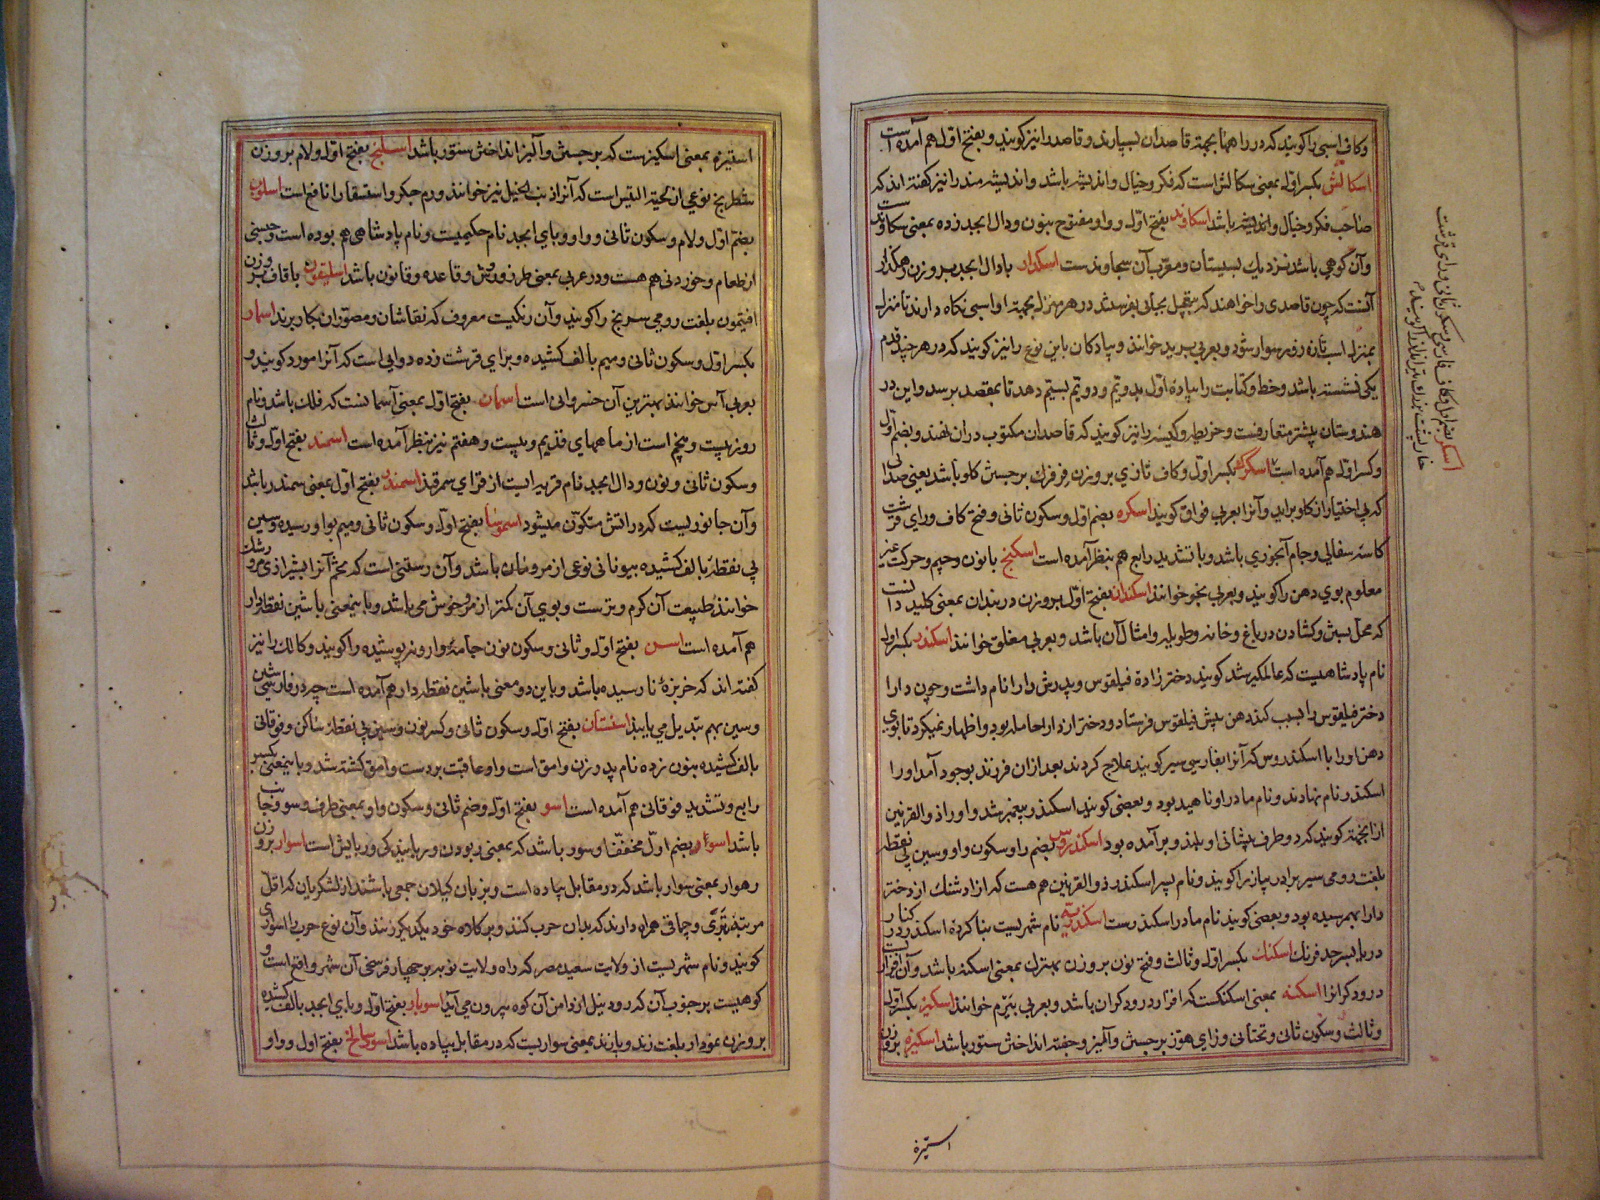 وکاف اسبی را کویند که در راهها بجهة قاصدان بسپارند و قاصد را نیز کویند و بفتح اول هم آمده است
اسکالش بکسر اول بمعنی سکالش است که فکر و خیال و اندیشه باشد و اندیشه مند را نیز کفته اند که
صاحب فکر و خیال و اندیشه باشد اسکاوند بفتح اول و واو مفتوح بنون و دال ابجد زده بمعنی سکاوند است
و آن کوهی باشد نزدیک بسیستان و معرب آن سجاوند ست اسکدار با دال ابجد بر وزن رهکذار
آنست که چون قاصدی را خواهند که بتعجیل بجائی بفرستند در هر منزل بجهة او اسبی نکاه دارند تا منزل
بمنزل اسب تازه زور سوار شود و بعربی برید خوانند و پیادکان باین نوع را نیز کویند که در هر چند قدم
یکی نشسته باشد و خط و کتابت را پیاده اول بدویم و دویم بسیم دهد تا بمقصد برسد و این در
هندوستان پیشتر متعارفست و خریطه و کیسه را نیز کویند که قاصدان مکتوب در ان نهند و بضم اول
و کسر اول هم آمده است اسکرک بکسر اول و کاف تازی بر وزن فرفرک برجستن کلو باشد یعنی صدائی
که بی اختیار از کلو براید و آنرا بعربی فواق کویند اسکره بضم اول و سکون ثانی و فتح کاف و رای قرشت
کاسه سفالی و جام آبخوری باشد و با تشدید رابع هم بنظر آمده است اسکنج با نون و جیم و حرکت غیر
معلوم بوی دهن را کویند و بعربی بخر خوانند اسکندان بفتح اول بر وزن دربندان بمعنی کلید دانست
که محل بستن و کشادن در باغ و خانه و طویله و امثال آن باشد و بعربی مغلق خوانند اسکندر بکسر اول
نام پادشاهیست که عالمکیر شد کویند دختر زادۀ فیلقوس و پدرش دارا نام داشت و چون دارا
دختر فیلقوس را بسبب کند دهن پیش فیلقوس فرستاد و دختر از دارا حامله بود و اظهار نمیکرد تا بوی
دهن او را با اسکندروس که آنرا بفارسی سیر کویند علاج کردند بعد ازان فرزند بوجود آمد او را
اسکندر نام نهادند و نام مادر او ناهید بود و بعضی کویند اسکندر پیغمبر شد و او را ذوالقرنین
از انجهة کویند که دو طرف پیشانی او بلند و برآمده بود اسکندروس بضم را و سکون واو و سین بی نقطه
بلغت رومی سیر برادر پیاز را کویند و نام پسر اسکندر ذوالقرنین هم هست که از ارشنک از دختر
دارا بهم رسیده بود و بعضی کویند نام مادر اسکندر ست اسکندریه نام شهریست بنا کردۀ اسکندر و در کنار
دریا بسرحد فرنک اسکنک بکسر اول و ثالث و فتح نون بر وزن بهترک بمعنی اسکنه باشد و آن افزاریست
درودکرانرا اسکنه بمعنی اسکنکست که افزار درودکران باشد و بعربی بیرم خوانند اسکیز بکسر اول
و ثالث و سکون ثانی و تحتانی و زای هوز برجستن و آلیز و جفته انداختن ستور باشد اسکیزه بر وزن
استیزه
اسکر بضم اول و کاف فارسی و سکون ثانی و رای قرشت
خارپشت بزرک تیرانداز را کویند
استیزه بمعنی اسکیز ست که برجستن و آلیز انداختن ستور باشد اسلنج بفتح اول و لام بر وزن
شطرنج نوعی از لحیة التیس است که آنرا ذنب الخیل نیز خوانند ورم جکر و استسقا را نافع است اسلوب
بضم اول و لام و سکون ثانی و واو و بای ابجد نام حکیمیست و نام پادشاهی هم بوده است و جنسی
از طعام و خوردنی هم هست و در عربی بمعنی طرز و روش و قاعده و قانون باشد اسلیقون با قاف بر وزن
افتیمون بلغت رومی سرنج را کویند و آن رنکیست معروف که نقاشان و مصوران بکار برند اسمار
بکسر اول و سکون ثانی و میم بالف کشیده و برای قرشت زده دوایی است که آنرا مورد کویند و
بعربی آس خوانند بهترین آن خسروانی است اسمان بفتح اول بمعنی آسمانست که فلک باشد و نام
روز بیست و پنجم است از ماههای قدیم و بیست و هفتم نیز بنظر آمده است اسمند بفتح اول و ثالث
و سکون ثانی و نون و دال ابجد نام قریه ایست از قرای سمرقند اسمندر بفتح اول بمعنی سمندر باشد
و آن جانوریست که در اتش متکون میشود اسموسا بفتح اول و سکون ثانی و میم بواو رسیده و سین
بی نقطه بالف کشیده بیونانی نوعی از مرو باشد و آن رستنی است که تخم آنرا بشیرازی مرو رشک
خوانند طبیعت آن کرم و تر ست و بوی آن کمتر از مرو خوش می باشد و با ینمعنی با شین نقطه دار
هم آمده است اسن بفتح اول و ثانی و سکون نون جامۀ وارونه پوشیده را کویند و کالک را نیز
کفته اند که خربزۀ نارسیده باشد و باین دو معنی با شین نقطه دار هم آمده است چه در فارسی شین
و سین بهم تبدیل می یابند اسنستان بفتح اول و سکون ثانی و کسر نون و سین بی نقطه ساکن و فوقانی
بالف کشیده بنون زده نام پدر زن وامق است و او عاقبت بر دست وامق کشته شد و باینمعنی بکسر
رابع و تشدید فوقانی هم آمده است اسو بفتح اول و ضم ثانی و سکون واو بمعنی طرف و سو و جانب
باشد اسوار بضم اول مخفف او سور باشد که بمعنی ربودن و رباینده کی و ربایش است اسوار بر وزن
رهوار بمعنی سوار باشد که در مقابل پیاده است و بزبان کیلان جمعی باشند از لشکریان که اقل
مرتبه تبری و چماقی همراه دارند که بدان حرب کنند و بر کلاه خود یکدیکر زنند و آن نوع حرب را اسواری
کویند و نام شهریست از ولایت سعید مصر که راه ولایت نوبه بر چهار فرسخی آن شهر واقع است و
کوهیست بر جنوب آن که رود نیل از دامن آن کوه بیرون می آید اسوبار بفتح اول و بای ابجد بالف کشیده
بر وزن نمودار بلغت زند و پازند بمعنی سواریست که در مقابل پیاده باشد اسوکالخ بفتح اول و واو